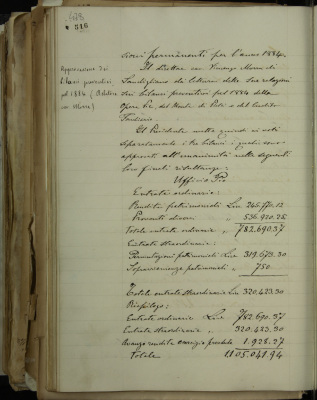 516
sioni permanenti per l'anno 1884.
Approvazione dei
bilanci preventivi
pel 1884 (Relatore
cav. Morra)
Il direttore cav. Vincenzo Morra di
dà lettura della sua relazione
sui bilanci preventivi pel 1884 delle
Opere Pie, del Monte di Pietà e del Credito
Fondiario.
Il Presidente mette quindi ai voti
separatamente i tre bilanci i quali sono
approvati all'unanimità nelle seguenti
loro finali risultanze:
Ufficio Pio
Entrate ordinarie:
Rendite patrimoniali Lire 245.771.12
Proventi diversi " 536.920.25
Totale entrate ordinarie " 782.690.37
Entrate straordinarie:
Permutazioni patrimoniali Lire 319.673.30
Sopravvenienze patrimoniali " 750
Totale entrate straordinarie Lire 320.423.30
Riepilogo:
Entrate ordinarie Lire 782.690.37
Entrate straordinarie " 320.423.30
Avanzo rendite esercizio 1.928.27
Totale 1.105.041.94